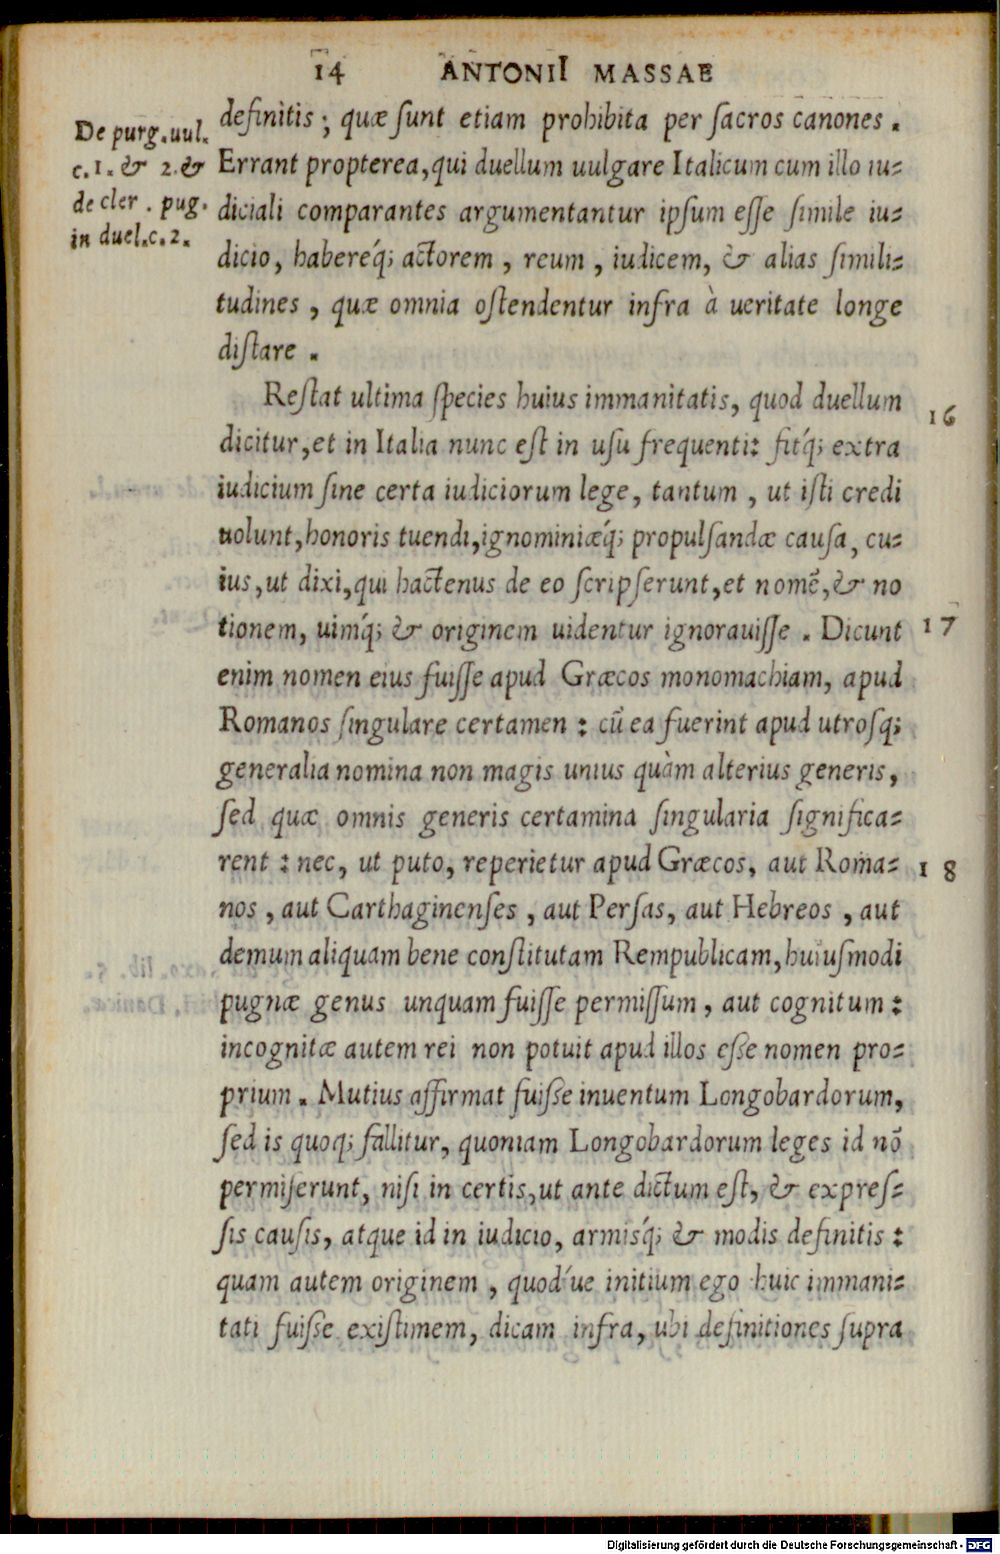 14 ANTONII MASSAE
De purg.uul.
c.1.& 2.&
de cler. pug.
in duel.c.2.
definitis; quæ ſunt etiam prohibita per ſacros canones.
Errant propterea, qui duellum uulgare Italicum cum illo iu-
diciali comparantes argumentantur ipſum eſſe ſimile iu-
dicio, habereq́; actorem, reum, iudicem, & alias ſimili-
tudines, quæ omnia oſtendentur infra à ueritate longe
diſtare.
Reſtat ultima ſpecies huius immanitatis, quod duellum
16
dicitur, et in Italia nunc eſt in uſu frequenti: fitq́; extra
iudicium ſine certa iudiciorum lege, tantum, ut iſti credi
uolunt, honoris tuendi, ignominiæq́; propulſandæ cauſa, cu-
ius, ut dixi, qui hactenus de eo ſcripſerunt, et nomē, & no
tionem, uimq́; & originem uidentur ignorauiſſe. Dicunt
17
enim nomen eius fuiſſe apud Græcos monomachiam, apud
Romanos ſingulare certamen: cū ea fuerint apud utroſq;
generalia nomina non magis unius quàm alterius generis,
ſed quæ omnis generis certamina ſingularia ſignifica-
rent: nec, ut puto, reperietur apud Græcos, aut Roma-
18
nos, aut Carthaginenſes, aut Perſas, aut Hebreos, aut
demum aliquam bene conſtitutam Rempublicam, huiuſmodi
pugnæ genus unquam fuiſſe permiſſum, aut cognitum:
incognitæ autem rei non potuit apud illos eſſe nomen pro-
prium. Mutius affirmat fuiſſe inuentum Longobardorum,
ſed is quoq; fallitur, quoniam Longobardorum leges id nō
permiſerunt, niſi in certis, ut ante dictum eſt, & expreſ-
ſis cauſis, atque id in iudicio, armisq́; & modis definitis:
quam autem originem, quod́ue initium ego huic immani-
tati fuiſſe exiſtimem, dicam infra, ubi definitiones ſupra
Digitalisierung gefördert durch die Deutsche Forschungsgemeinschaft - DFG